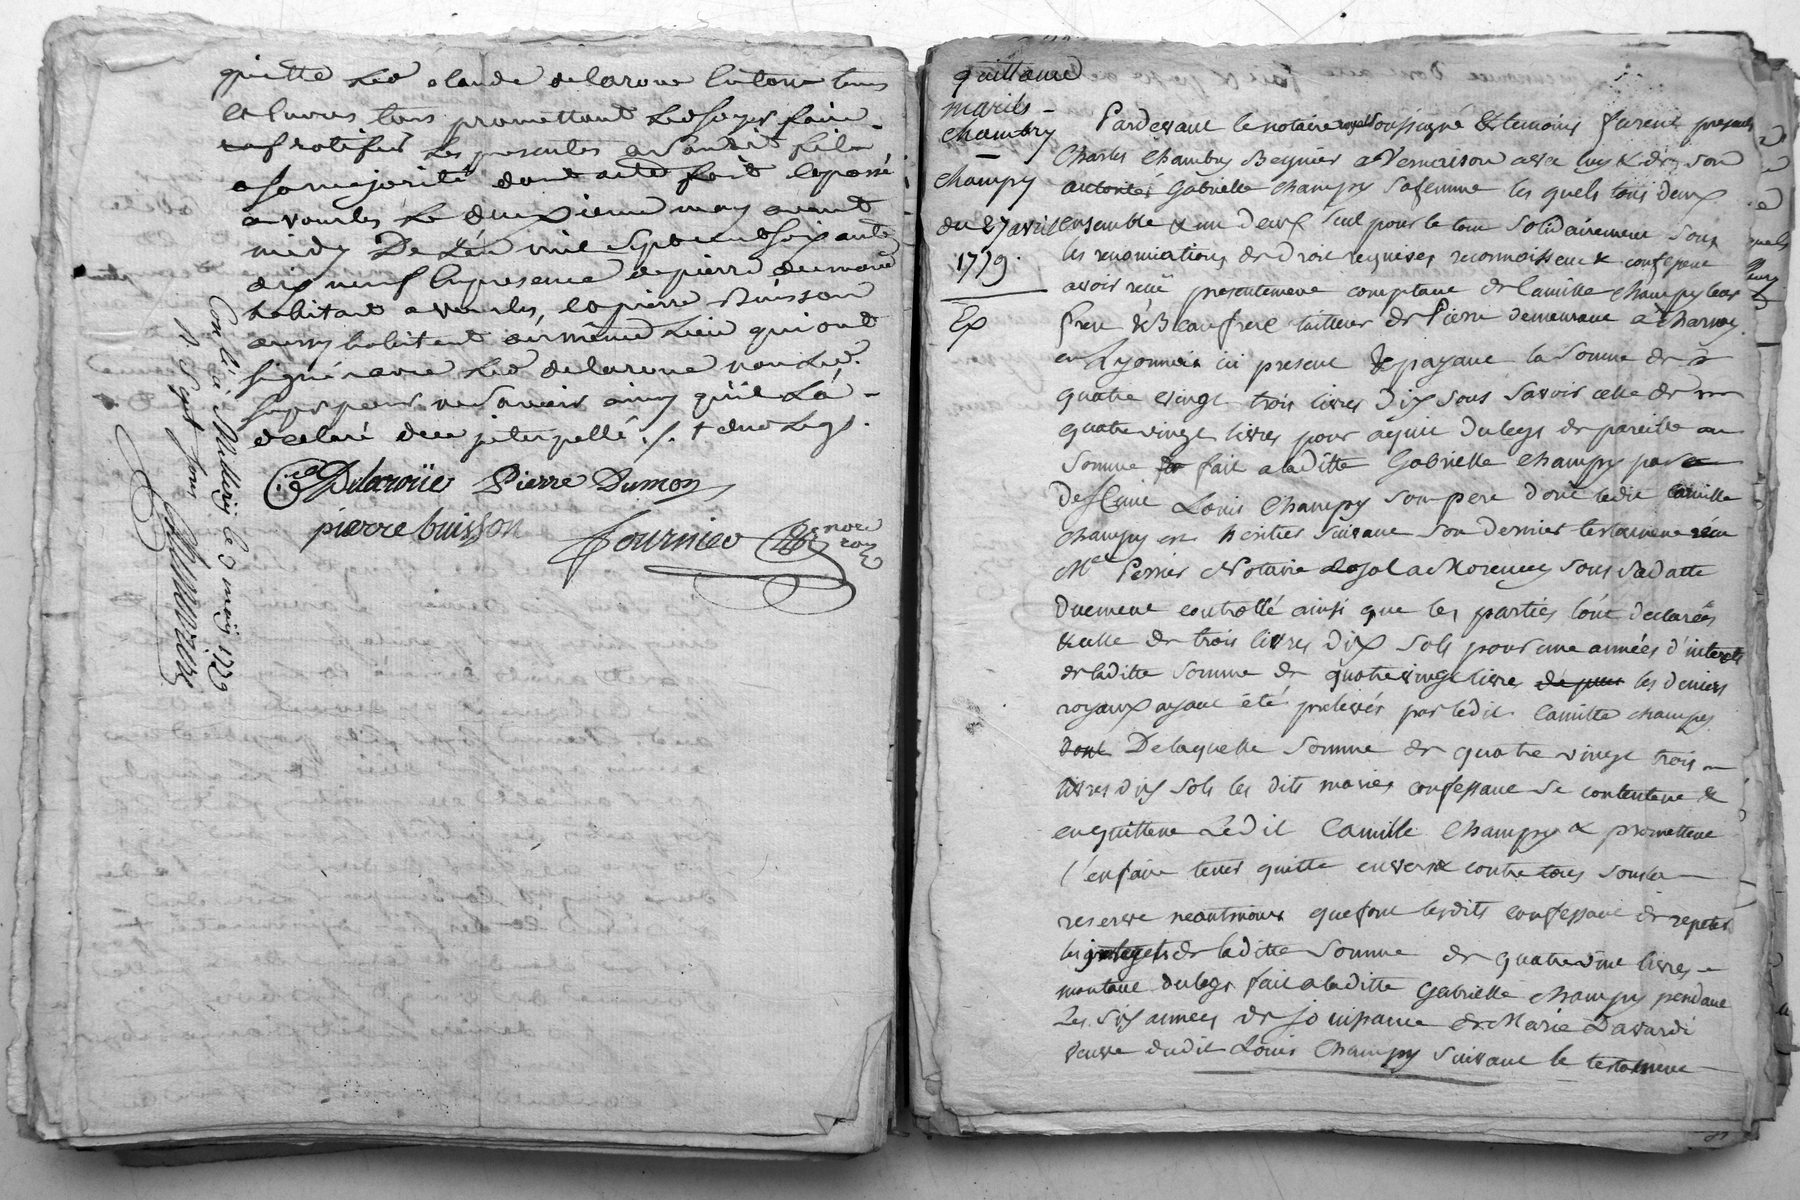 quitte led claude delaroue envers tous
promettant led
ratifier les presentes avant dit fils
a sa majorité dont acte fait et passé
a vourles le deuxieme may avant
midy De L'an mil Sept cent soixante
dix neuf En presence de pierre dumond
habitant a vourles, et pierre Buisson
aussy habitant au même lieu qui ont
signé avec led delaroue non led.
pour ne savoir ainsy qu'il L'a
declaré de ce interpellé
Delaroüe Pierre Dumon
pierre buisson
fournier no.re roy
Con.llé à Millery le 9 may 1779
quittance
mariés
chambry
champy
du 27 avril
1779.
Ex
Pardevant le notaire royal soussigné & temoins furent presents
Charles Chambry Beynier a Vernaison & de son
autorité Gabrielle champy sa femme les quels tous deux
ensemble & un d'eux seul pour le tout solidairement sous
les renonciations de Droit requises reconnoissent & confessent
avoir reçu presentement comptant de Camille champy leur
frere & Beaufrere tailleur de Pierre demeurant a charnay
en Lyonnois ici present & payant la somme de
quatre vingt trois livres Dix sous savoir celle de
quatre vingt livres pour du legs de pareille
somme fait a laditte Gabrielle champy par
Louis champy son pere dont ledit Camille
champy est heritier suivant son dernier testament reçu
Me Perrier Notaire Royal a Morencey sous sa datte
duement controllé ainsi que les parties l'ont declaré
& celle de trois livres dix sols pour une années d'interets
de laditte somme de quatre vingt livres les deniers
royaux ayant été prelevés par ledit Camille champy
Delaquelle somme de quatre vingt trois
livres dix sols les dits mariés confessant se contentent &
en quittent Ledit Camille Champy & promettent
l'en faire tenir quitte envers & contre tous sous la
reserve neantmoins que font lesdits confessant de repeter
les interets de laditte somme de quatre vint livres
montant du legs fait a laditte Gabrielle champy pendant
les six années de jouissance de Marie Davardi
veuve dudit Louis Champy suivant le testament